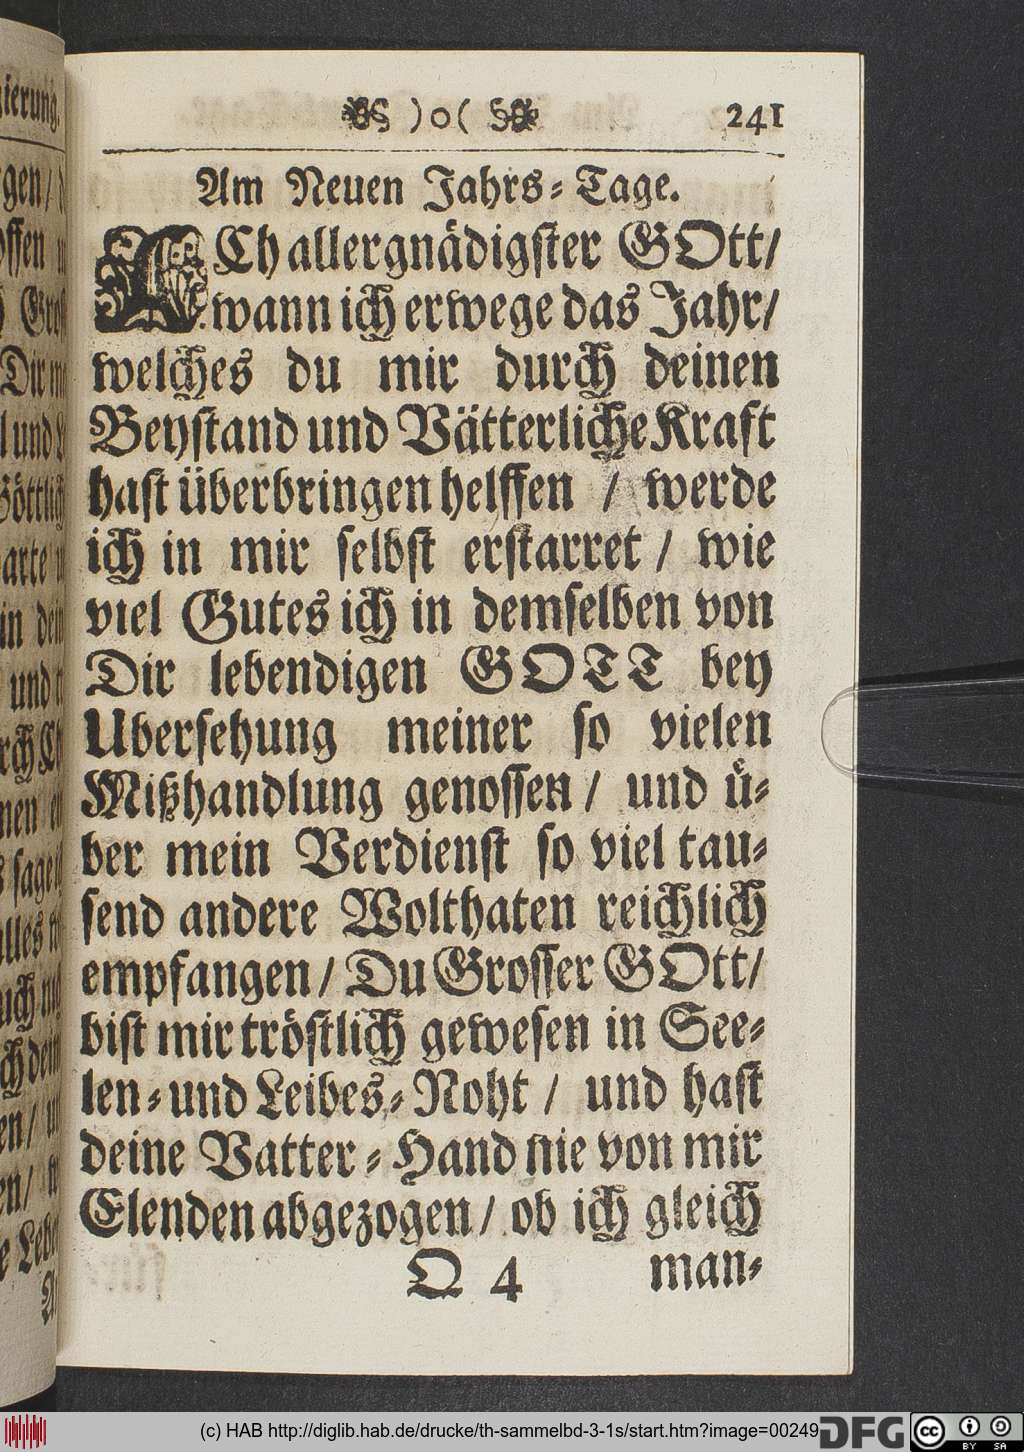 )o( 241
Am Neuen Jahrs⸗Tage.
ACh allergnädigſter GOtt/
wann ich erwege das Jahr/
welches du mir durch deinen
Beyſtand und Vätterliche Kraft
haſt überbringen helffen / werde
ich in mir ſelbſt erſtarret / wie
viel Gutes ich in demſelben von
Dir lebendigen GOTT bey
Uberſehung meiner ſo vielen
Mißhandlung genoſſen / und uͤ⸗
ber mein Verdienſt ſo viel tau⸗
ſend andere Wolthaten reichlich
empfangen / Du Groſſer GOtt/
biſt mir tröſtlich geweſen in See⸗
len⸗ und Leibes⸗Noht / und haſt
deine Vatter⸗Hand nie von mir
Elenden abgezogen / ob ich gleich
Q 4 man⸗
(c) HAB http://diglib.hab.de/drucke/th-sammelbd-3-1s/start.htm?image=00249
DFG cc BY SA